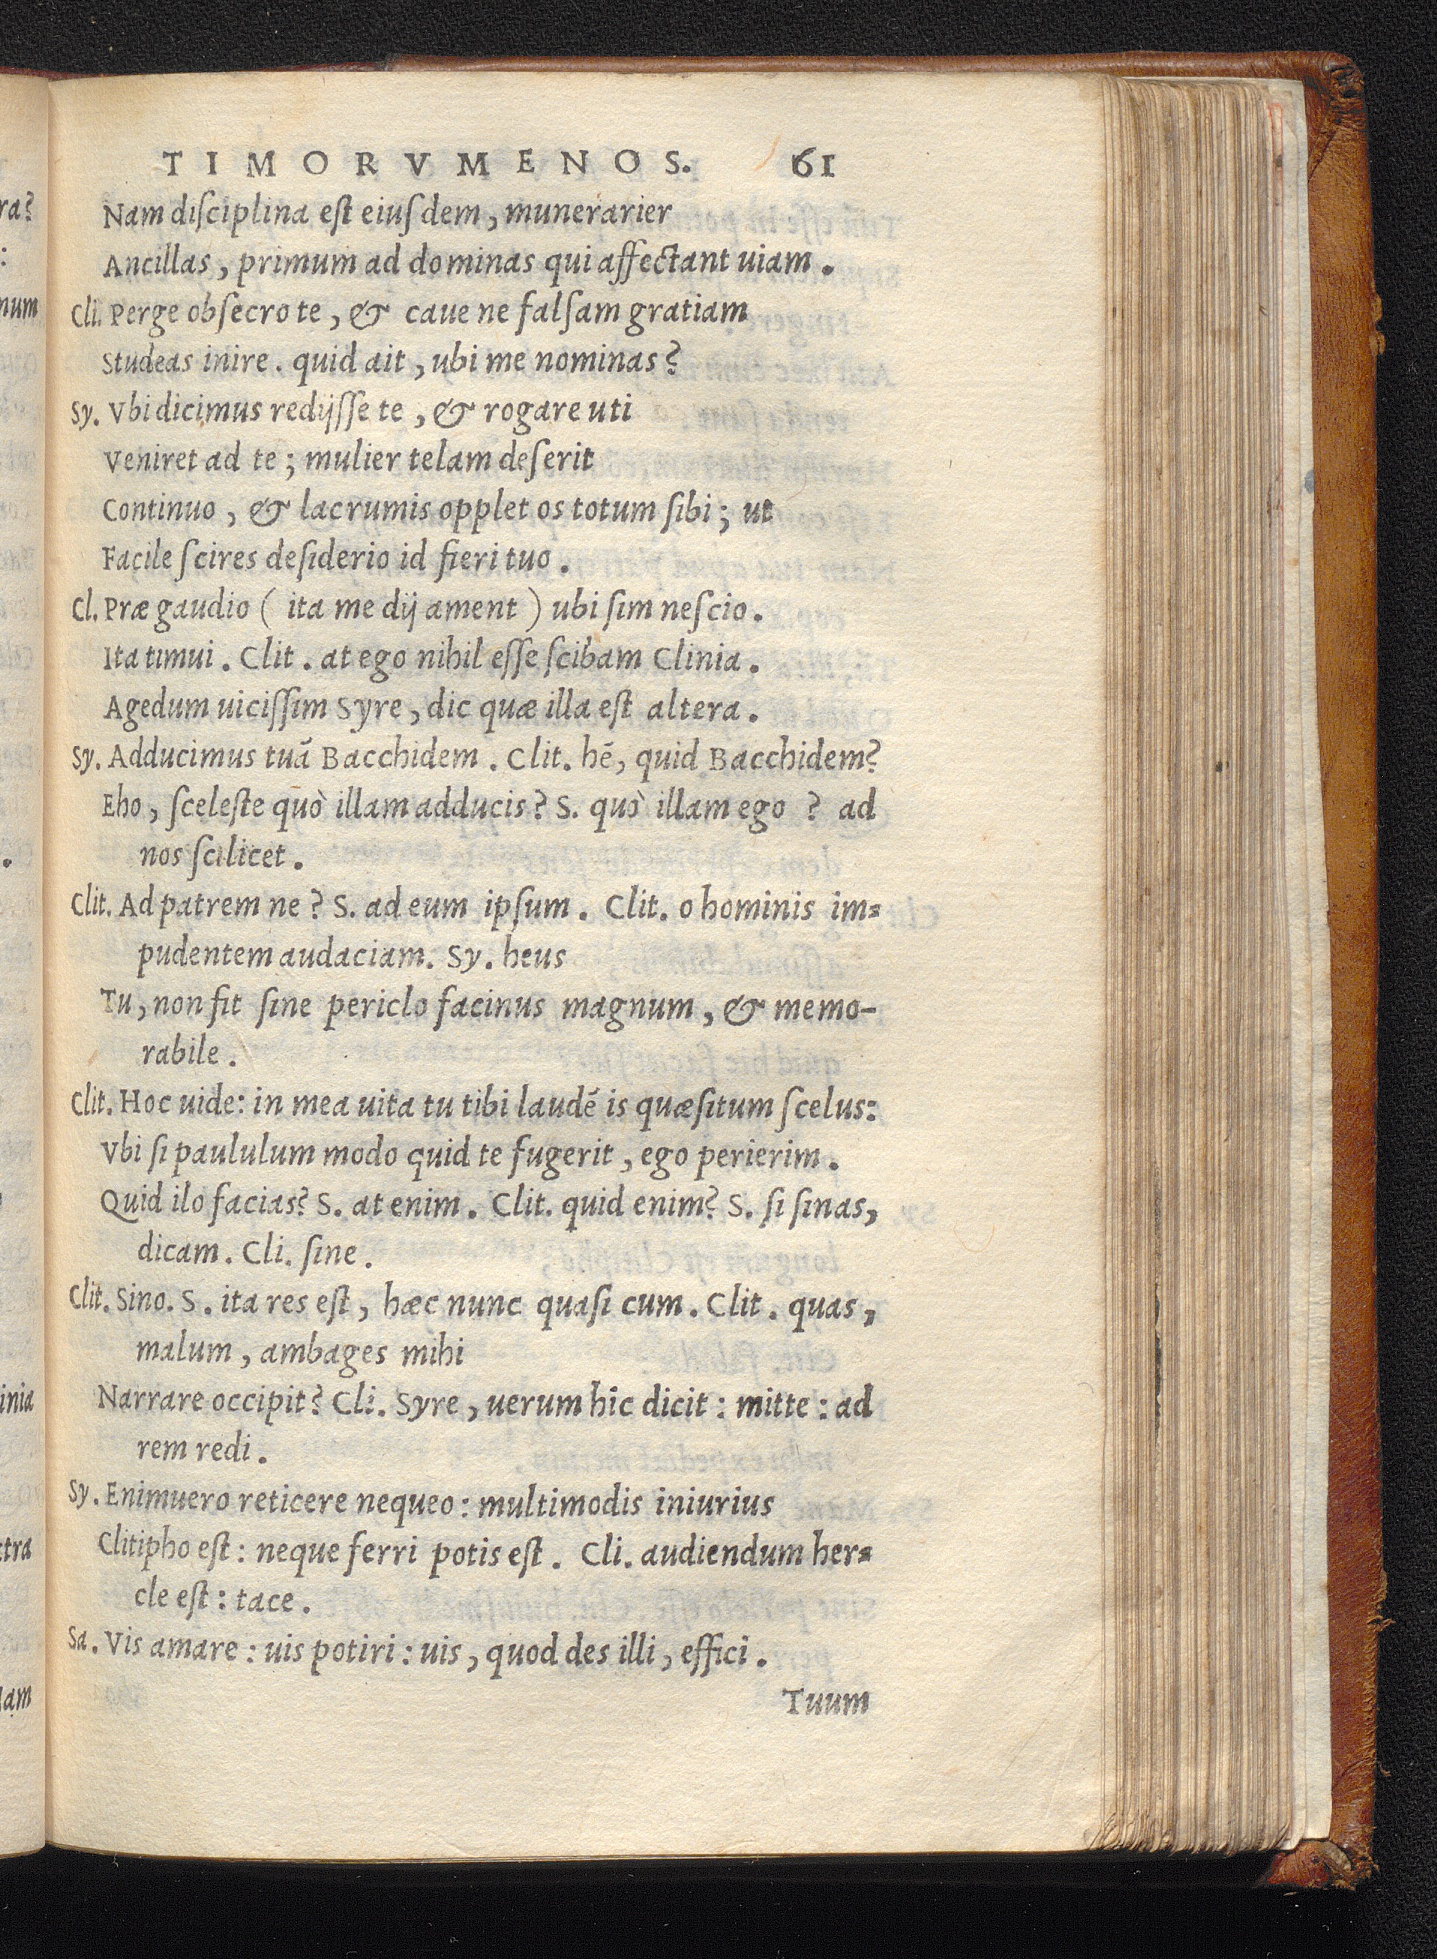 TIMORVMENOS. 61
Nam diſciplina eſt eiuſdem, munerarier
Ancillas, primum ad dominas qui affectant uiam.
Cli. Perge obſecro te, & caue ne falſam gratiam
Studeas inire. quid ait, ubi me nominas?
Sy. Vbi dicimus redijſſe te, & rogare uti
Veniret ad te; mulier telam deſerit
Continuo, & lacrumis opplet os totum ſibi; ut
Facile ſcires deſiderio id fieri tuo.
Cl. Præ gaudio ( ita me dij ament ) ubi ſim neſcio.
Ita timui. Clit. at ego nihil eſſe ſcibam Clinia.
Agedum uiciſſim Syre, dic quæ illa eſt altera.
Sy. Adducimus tuã Bacchidem. Clit. hẽ, quid Bacchidem?
Eho, ſceleſte quò illam adducis? S. quò illam ego ? ad
nos ſcilicet.
Clit. Ad patrem ne? S. ad eum ipſum. Clit. o hominis im=
pudentem audaciam. Sy. heus
Tu, non fit ſine periclo facinus magnum, & memo-
rabile.
Clit. Hoc uide: in mea uita tu tibi laudẽ is quæſitum ſcelus:
Vbi ſi paululum modo quid te fugerit, ego perierim.
Quid ilo facias? S. at enim. Clit. quid enim? S. ſi ſinas,
dicam. Cli. ſine.
Clit. Sino. S. ita res eſt, hæc nunc quaſi cum. Clit. quas,
malum, ambages mihi
Narrare occipit? Cli. Syre, uerum hîc dicit: mitte: ad
rem redi.
Sy. Enimuero reticere nequeo: multimodis iniurius
Clitipho eſt: neque ferri potis eſt. Cli. audiendum her=
cle eſt: tace.
Sa. Vis amare: uis potiri: uis, quod des illi, effici.
Tuum